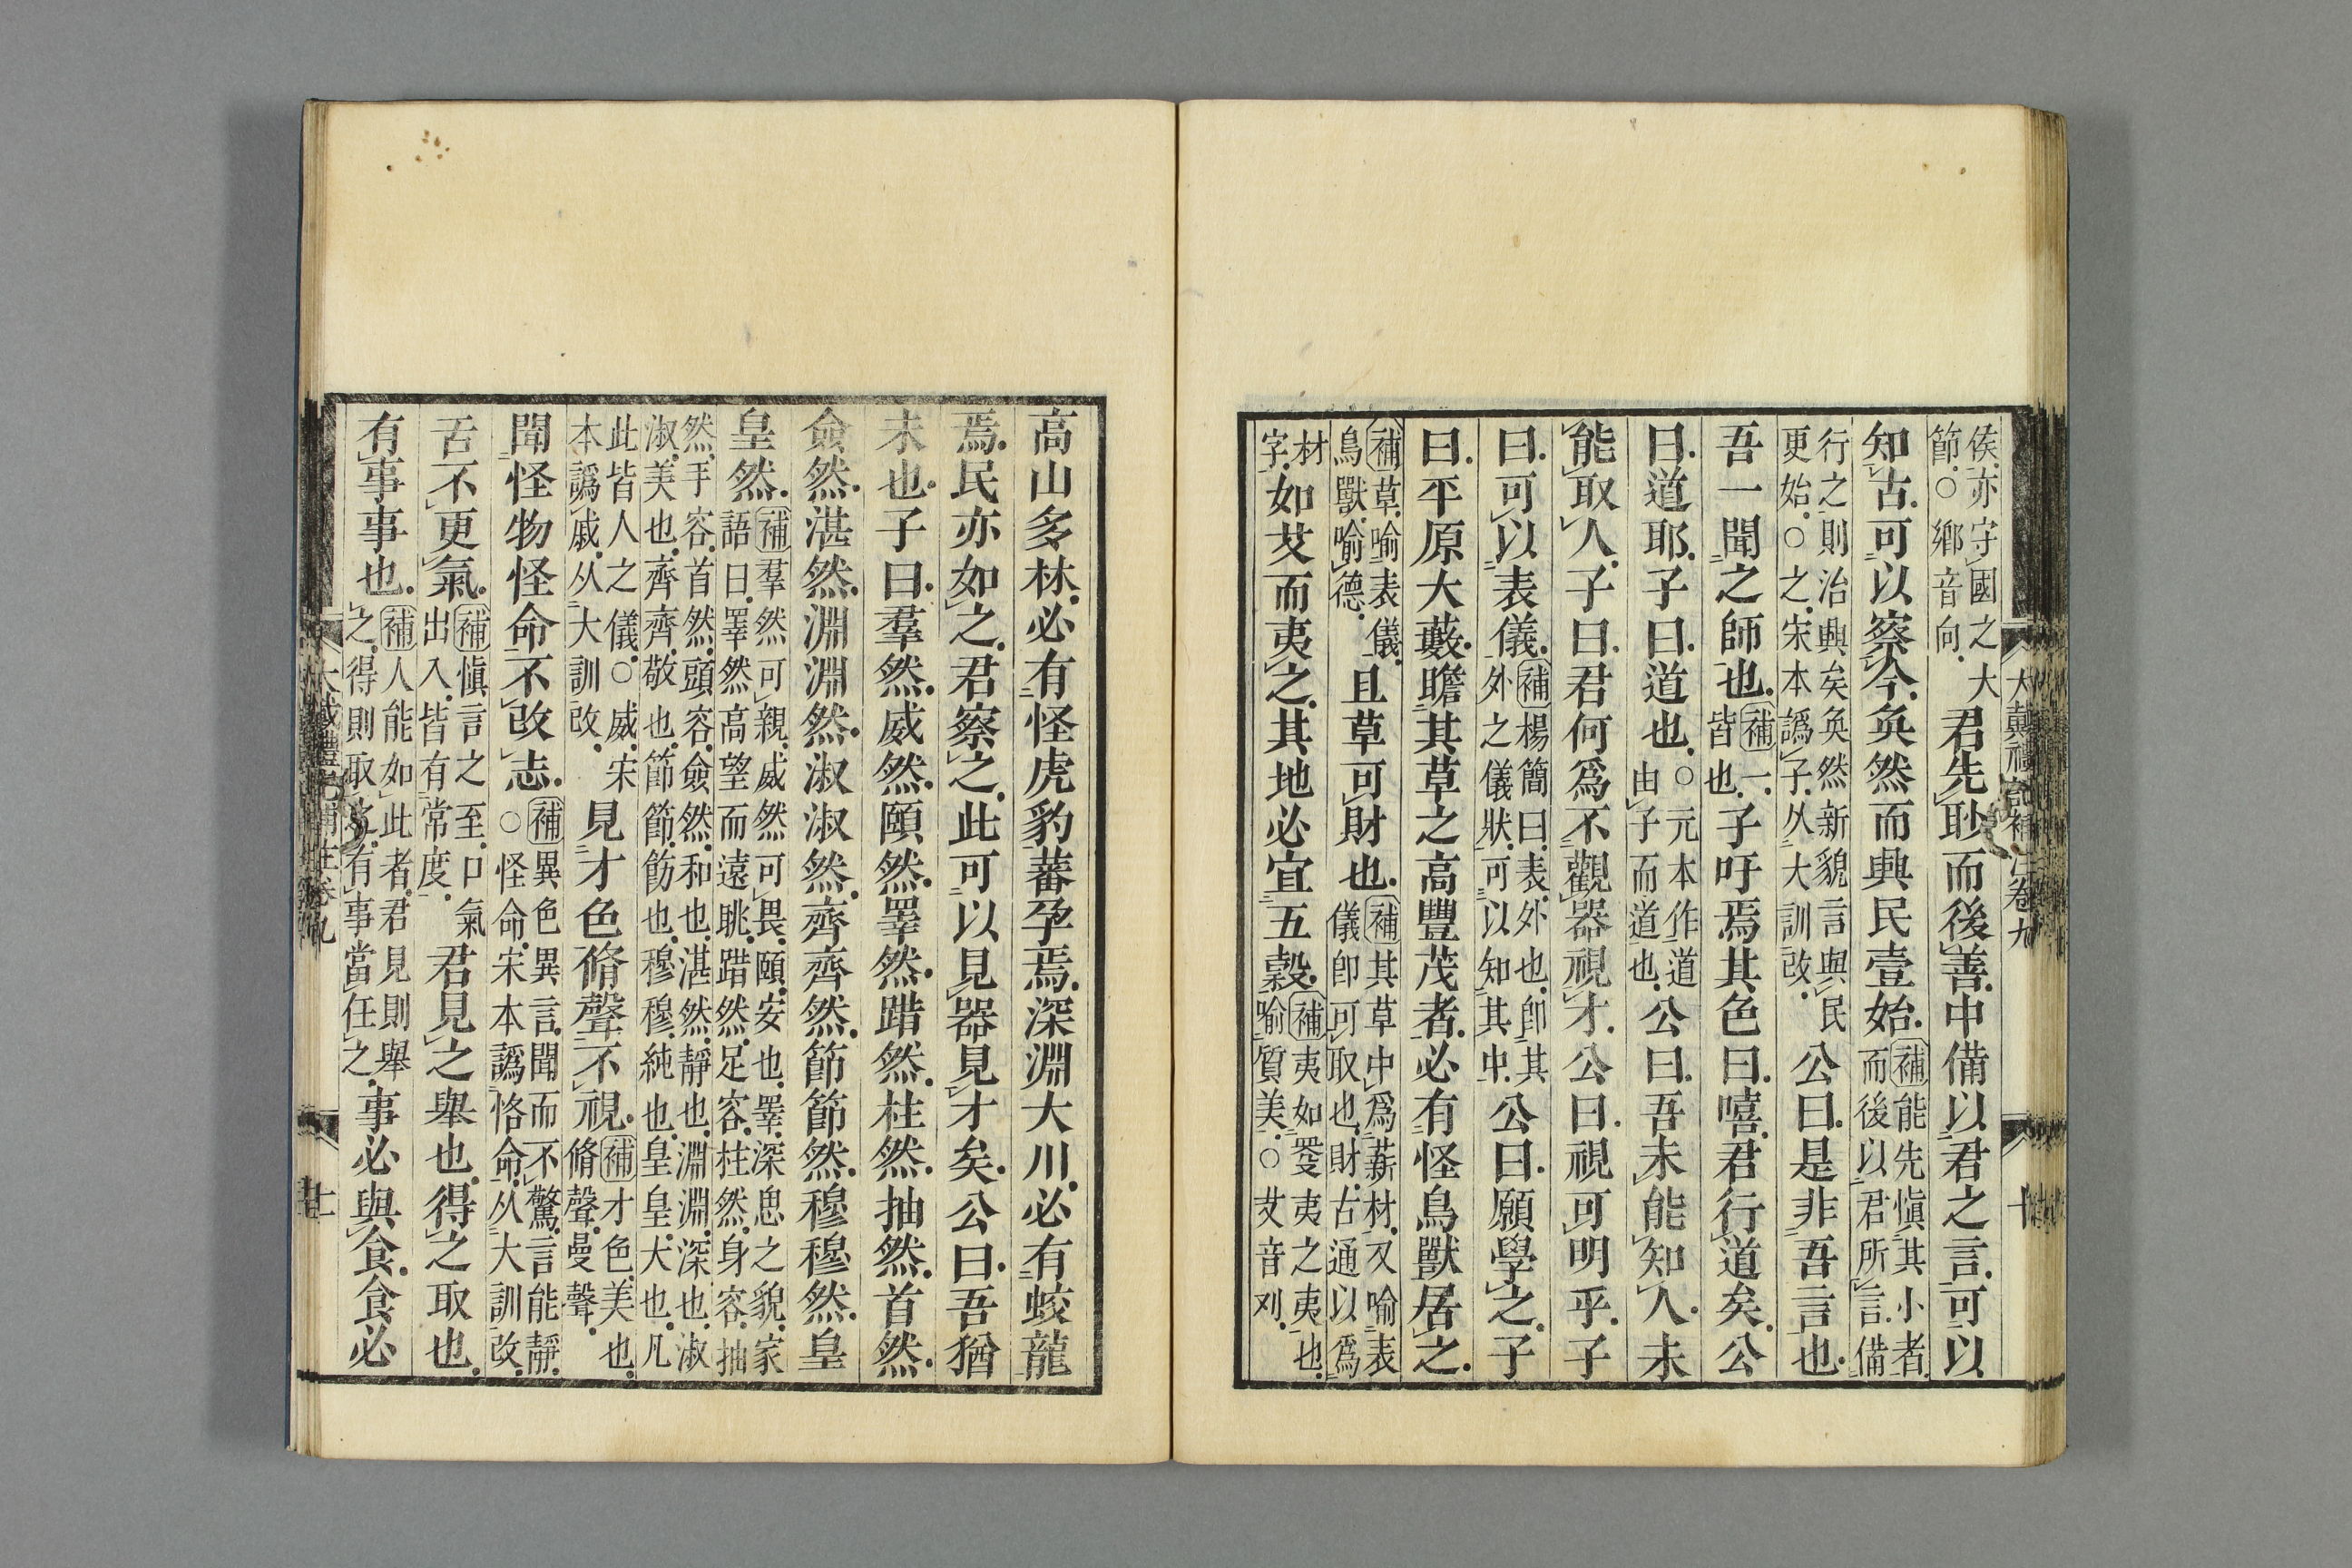 侯亦守國之大
節○鄉音向
君先眇而後善中備以君之言可以
知古可以察今奐然而興民壹始
補能先愼其小者
而後以君所言備
行之則治興矣奐然新貌言與民
更始○之宋本譌子从大訓改
公曰是非吾言也
吾一聞之師也
補一
皆也
子吁焉其色曰嘻君行道矣公
曰道耶子曰道也
○元本作道
由子而道也
公曰吾未能知人未
能取人子曰君何爲不觀器視才公曰視可明乎子
曰可以表儀
補楊簡曰表外也卽其
外之儀狀可以知其中
公曰願學之子
曰平原大藪瞻其草之高豐茂者必有怪鳥獸居之
補草喻表儀
鳥獸喻德
且草可財也
補其草中爲薪材又喻表
儀卽可取也財古通以爲
材
字
如艾而夷之其地必宜五穀
補夷如芟夷之夷也
喻質美○艾音刈
大戴禮記補注卷九
十
高山多林必有怪虎豹蕃孕焉深淵大川必有蛟龍
焉民亦如之君察之此可以見器見才矣公曰吾猶
未也子曰羣然威然頤然睪然踖然柱然抽然首然
僉然湛然淵淵然淑淑然齊齊然節節然穆穆然皇
皇然
補羣然可親威然可畏頤安也睪深思之貌家
語曰睪然高望而遠眺踖然足容柱然身容抽
然手容首然頭容僉然和也湛然靜也淵淵深也淑
淑美也齊齊敬也節節飭也穆穆純也皇皇大也凡
此皆人之儀○威宋
本譌戚从大訓改
見才色脩聲不視
補才色美也
脩聲曼聲
聞怪物怪命不改志
補異色異言聞而不驚言能靜
○怪命宋本譌恪命从大訓改
舌不更氣
補愼言之至口氣
出入皆有常度
君見之舉也得之取也
有事事也
補人能如此者君見則舉
之得則取之有事當任之
事必與食食必
大戴禮記補注卷九
十一